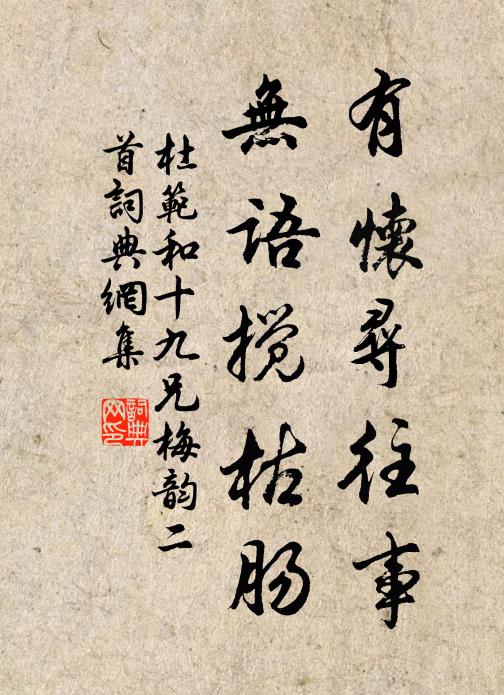 有懷尋往事
無語攪枯肠
杜範和十九兄梅韵二
首詞典網集
詞典
网印